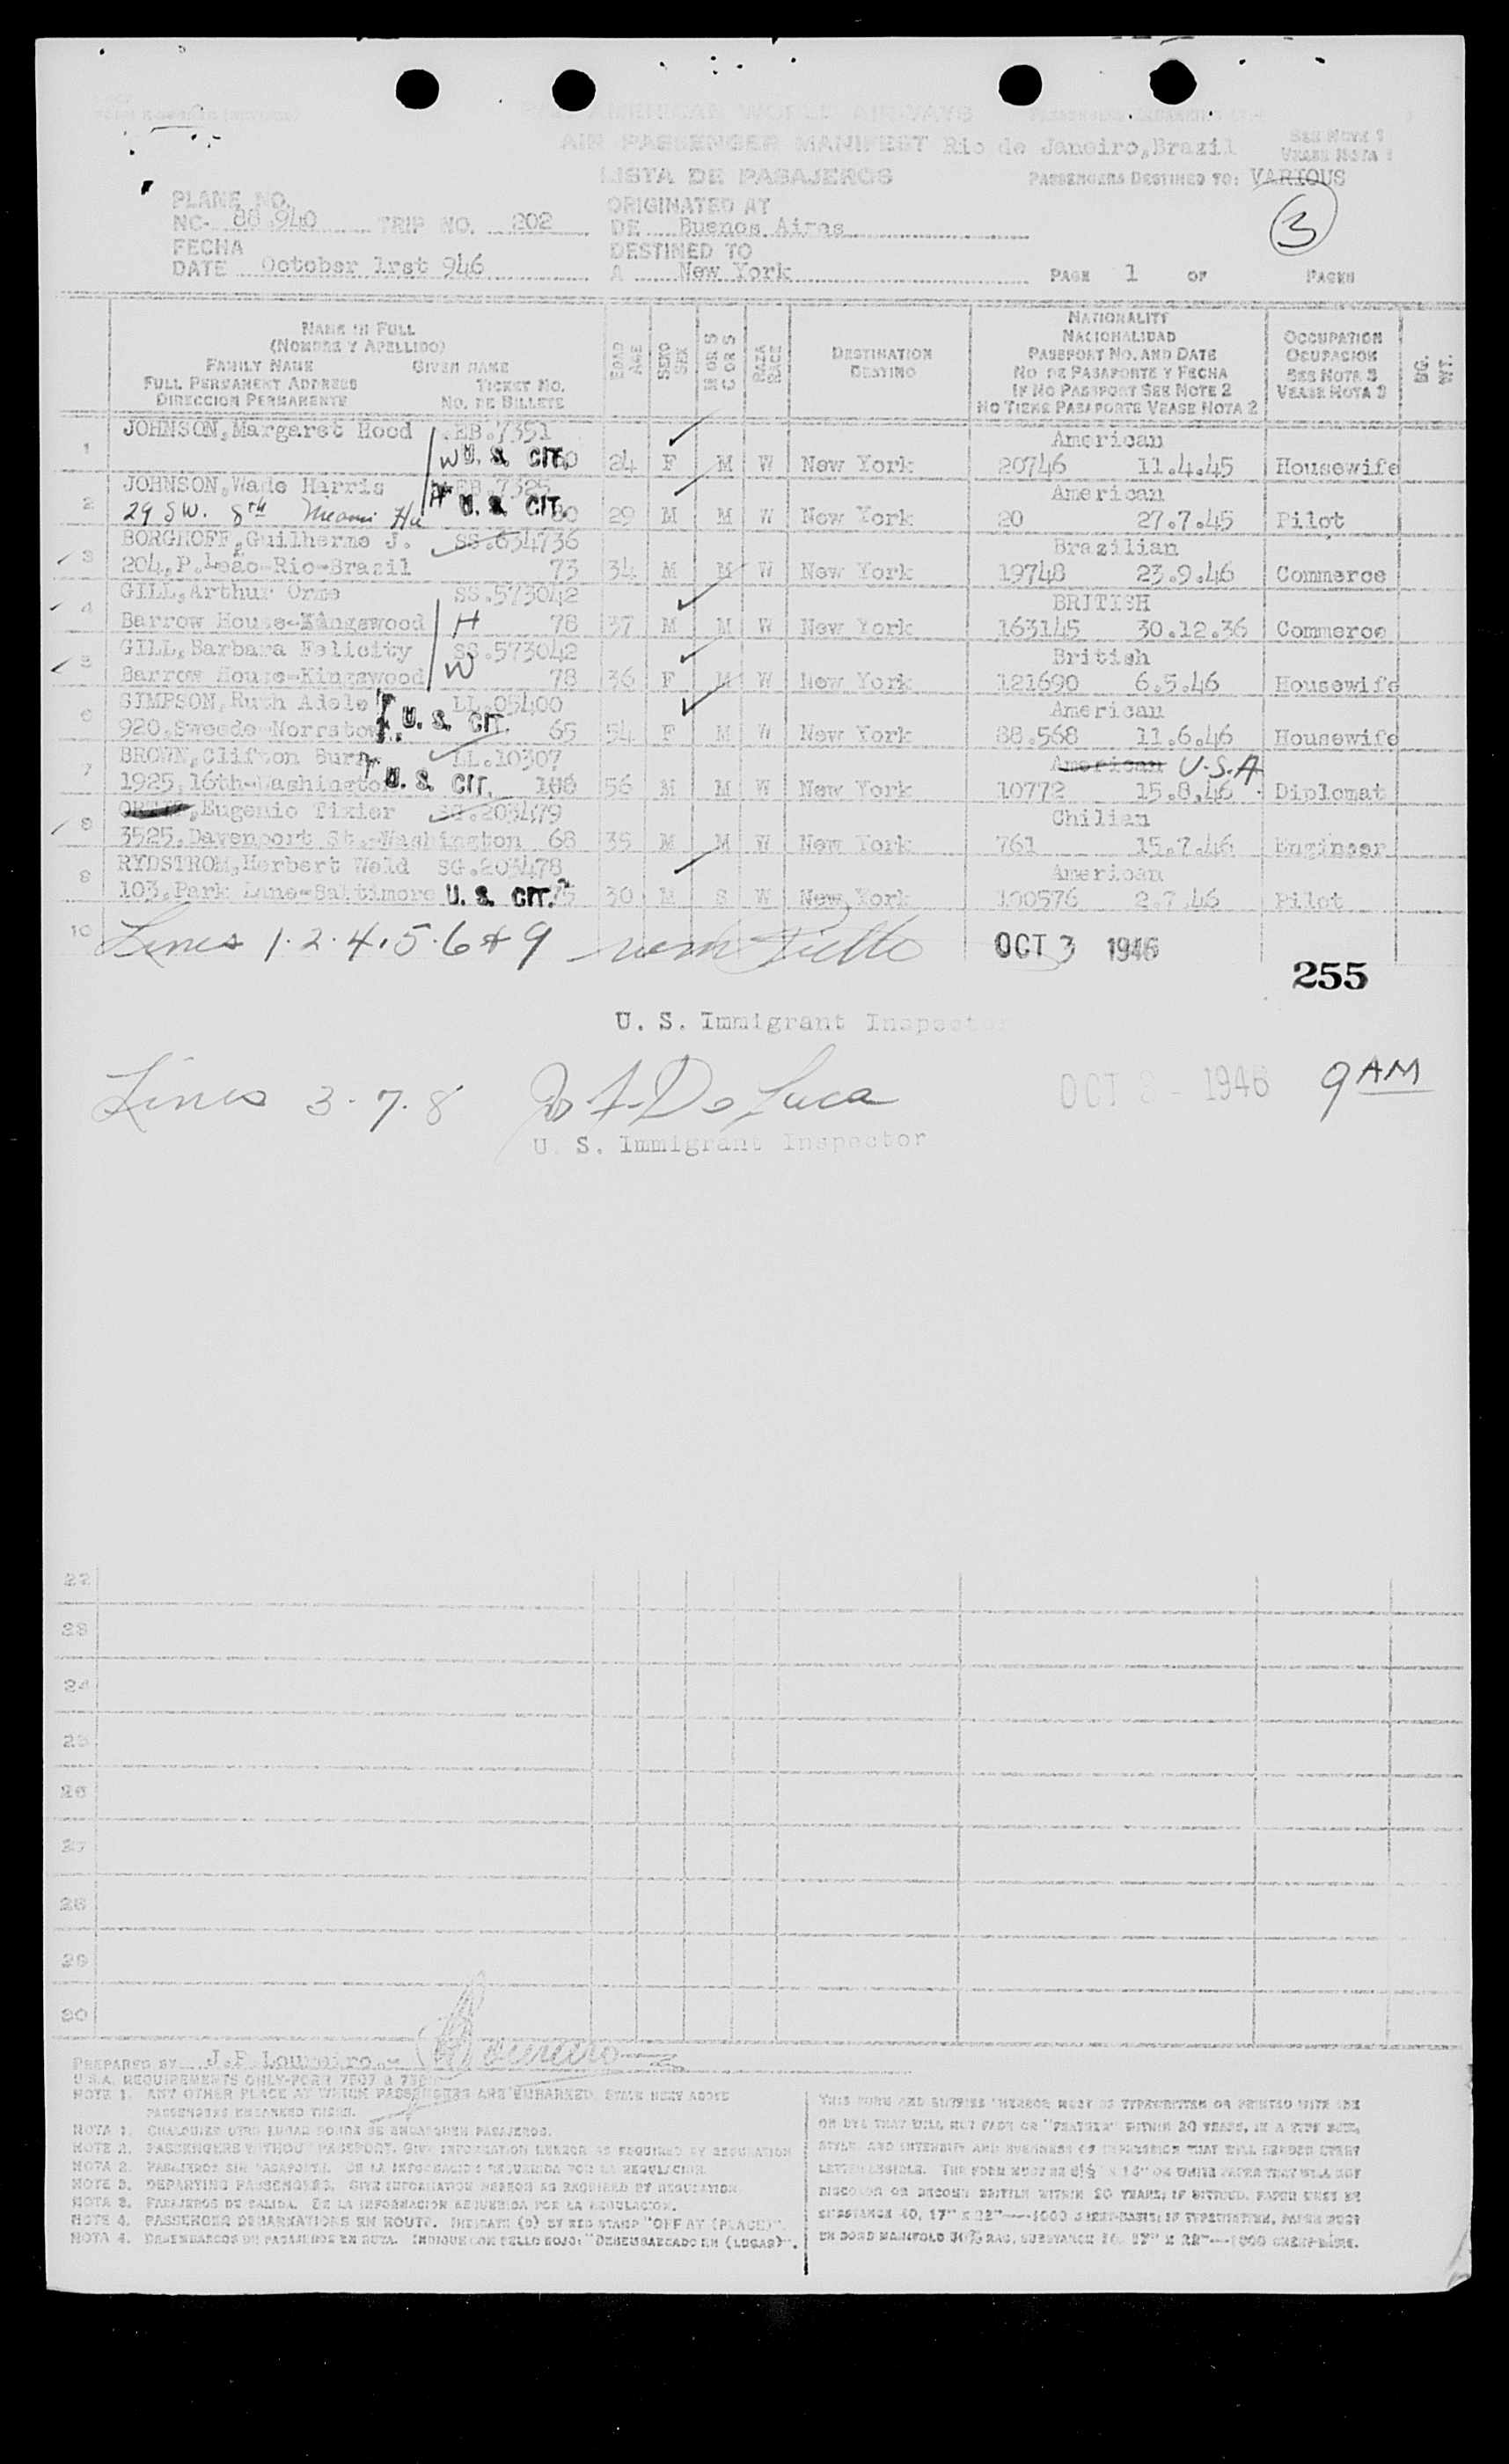 PAN AMERICAN WORLD AIRWAYS
AIR PASSENGER MANIFEST Rio de Janeiro,Brazil
SEE NOTE 1
VEASE NOTA 1
LISTA DE PASAJEROS
PASSENGERS DESTINED TO: VARIOUS
3
PLANE NO.
NC- 88.940 TRIP NO. 202
ORIGINATED AT
DE Buenos Aires
FECHA
DATE October 1rst 946
DESTINED TO
A New York
PAGE 1 OF PAGES
NAME IN FULL
(NOMBRE Y APELLIDO)
FAMILY NAME GIVEN NAME
FULL PERMANENT ADDRESS TICKET NO.
DIRECCION PERMANENTE NO. DE BILLETE
EDAD
AGE
SEXO
SEX
M OR S
C OR S
RAZA
RACE
DESTINATION
DESTINO
NATIONALITY
NACIONALIDAD
PASSPORT NO. AND DATE
NO DE PASAPORTE Y FECHA
IF NO PASSPORT SEE NOTE 2
NO TIENE PASAPORTE VEASE NOTA 2
OCCUPATION
OCUPACION
SEE NOTE 3
VEASE NOTA 3
BG.
WT.
JOHNSON,Margaret Hood EB.7351 American
1 W U. S. CIT. 24 F M W New York 20746 11.4.45 Housewife
JOHNSON,Wade Harris EB.7325 American
2 29 SW. 8th Miami Fla H U. S. CIT. 29 M M W New York 20 27.7.45 Pilot
BORGHOFF,Guilherme J. SS.634736 Brazilian
3 204,P.Leão-Rio-Brasil 73 34 M M W New York 19748 23.9.46 Commerce
GILL,Arthur Orme SS.573042 BRITISH
4 Barrow House-Kingswood H 78 37 M M W New York 163145 30.12.36 Commerce
GILL,Barbara Felicity SS.573042 British
5 Barrow House-Kingswood W 78 36 F M W New York 121690 6.5.46 Housewife
SIMPSON,Ruth Adele LL.05400 American
6 920,Sweede-Norrstow U. S. CIT. 65 54 F M W New York 88.568 11.6.46 Housewife
BROWN,Clifton Burr LL.10307 American U.S.A.
7 1925,16th-Washington U. S. CIT. 100 56 M M W New York 10772 15.8.46 Diplomat
,Eugenio Tixier SG.203479 Chilian
8 3525,Davenport St.-Washington 68 35 M M W New York 761 15.7.46 Engineer
RYDSTROM,Herbert Weld SG.203478 American
9 103,Park Lane-Baltimore U. S. CIT. 75 30 M S W New York 100576 2.7.46 Pilot
10 Lines 1.2.4.5.6 & 9 OCT 3 1946
255
U. S. Immigrant Inspector
Lines 3.7.8 De Luca OCT 3 - 1946 9 AM
U. S. Immigrant Inspector
22
23
24
25
26
27
28
29
30
PREPARED BY J.F Loureiro
U.S.A. REQUIREMENTS ONLY-FORM 7507 &
NOTE 1. ANY OTHER PLACE AT WHICH PASSENGERS ARE EMBARKED. STATE HERE ABOVE
PASSENGERS EMBARKED THERE.
NOTA 1. CUALQUIER OTRO LUGAR DONDE SE EMBARQUEN PASAJEROS.
NOTE 2. PASSENGERS WITHOUT PASSPORT. GIVE INFORMATION HEREON AS REQUIRED BY REGULATION
NOTA 2. PASAJEROS SIN PASAPORTE. DE LA INFORMACION REQUERIDA POR LA REGULACION.
NOTE 3. DEPARTING PASSENGERS. GIVE INFORMATION HEREON AS REQUIRED BY REGULATION.
NOTA 3. PASAJEROS DE SALIDA. DE LA INFORMACION REQUERIDA POR LA REGULACION.
NOTE 4. PASSENGER DEBARKATIONS EN ROUTE. INDICATE (D) BY RED STAMP "OFF AT (PLACE)".
NOTA 4. DESEMBARCOS DE PASAJEROS EN RUTA. INDIQUE CON SELLO ROJO: "DESEMBARCADO EN (LUGAR)".
THIS FORM AND ENTRIES HEREON MUST BE TYPEWRITTEN OR PRINTED WITH INK
OR DYE THAT WILL NOT FADE OR "FEATHER" WITHIN 20 YEARS, IN A TYPE SIZE,
STYLE AND INTENSITY AND SHARPNESS OF IMPRESSION THAT WILL RENDER EVERY
LETTER LEGIBLE. THE FORM MUST BE 8½" X 14" ON WHITE PAPER THAT WILL NOT
DISCOLOR OR BECOME BRITTLE WITHIN 20 YEARS; IF DITTOED, PAPER MUST BE
SUBSTANCE 40, 17" X 22"----1000 SHEET-BASIS; IF TYPEWRITTEN, PAPER MUST
BE BOND MANIFOLD 50% RAG, SUBSTANCE 16, 17" X 22"---1000 SHEET-BASIS.